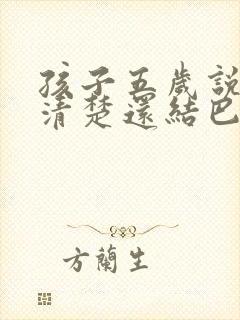 孩子五歲說
清楚還結巴
方蘭生